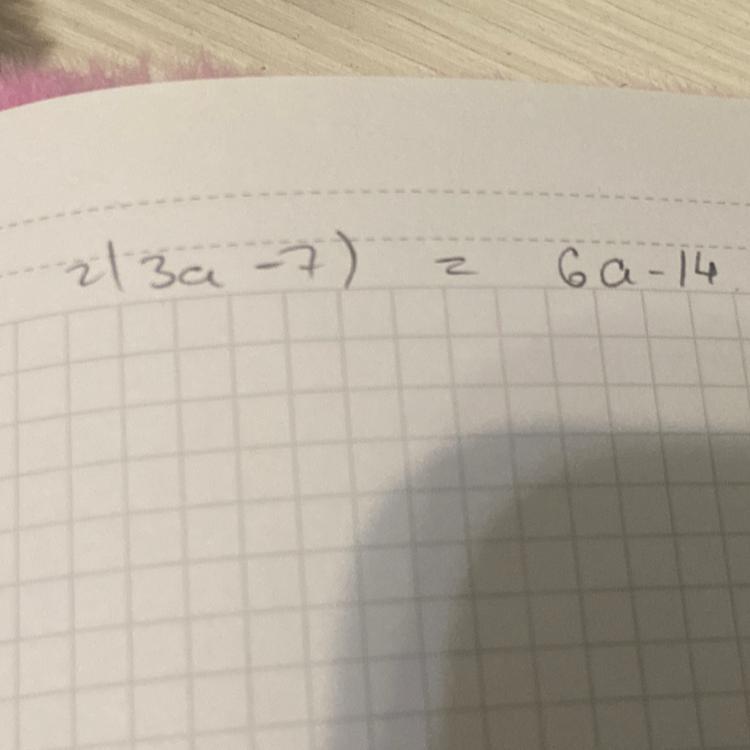 2(3a - 7) = 6a - 14